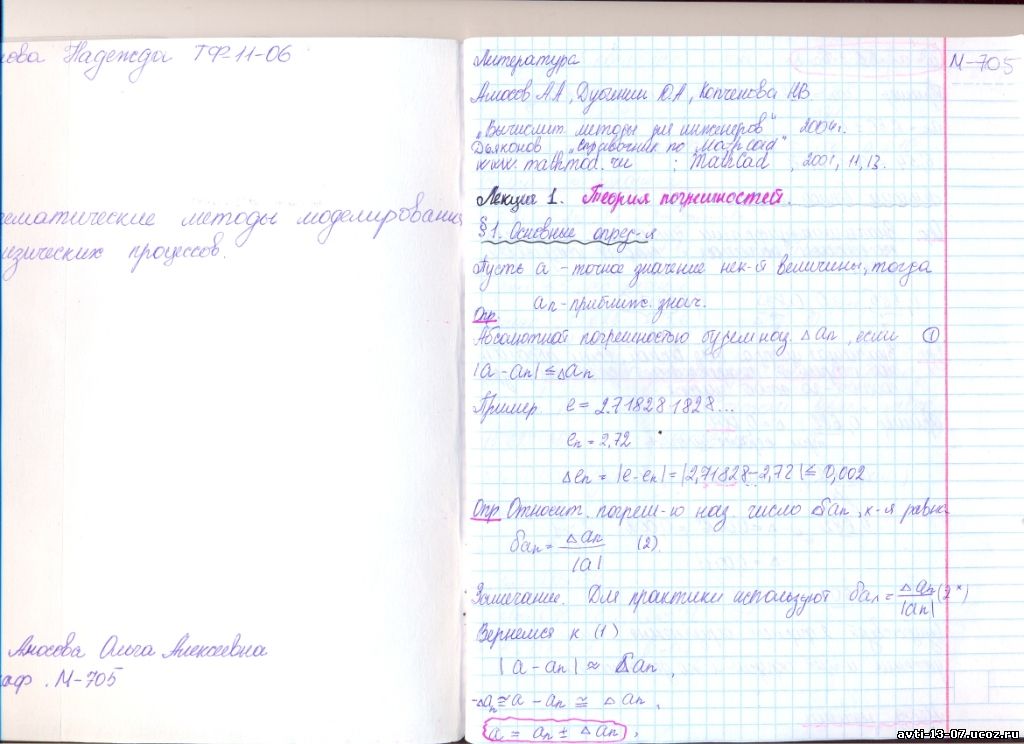 нова Надежда ТФ-11-06
тематические методы моделирования
изических процессов.
Амосова Ольга Алексеевна
каф. М-705
Литература
М-705
Амосов А.А, Дубинин Ю.А, Копченова Н.В.
„Вычислит. методы для инженеров" 2004г.
Дьяконов „Справочник по Mathcad"
: MathCad , 2001, 11, 13.
Лекция 1. Теория погрешностей.
§1. Основные опред-я
Пусть a - точное значение нек-й величины, тогда
aп - приближ. знач.
Опр.
Абсолютной погрешностью будем наз. △aп, если ①
|a - aп| ≤ △aп
Пример e = 2.718281828...
eп = 2,72
△eп = |e-eп| = |2,71828-2,72| ≤ 0,002
Опр Относит. погреш-ю наз. число δaп, к-я равна
δaп = △aп / |a| (2)
Замечание. Для практики используют δaп = △aп / |aп| (2*)
Вернемся к (1)
|a - aп| ≈ △aп ,
-△aп ≅ a - aп ≅ △aп ,
a = aп ± △aп ,
avti-13-07.ucoz.ru